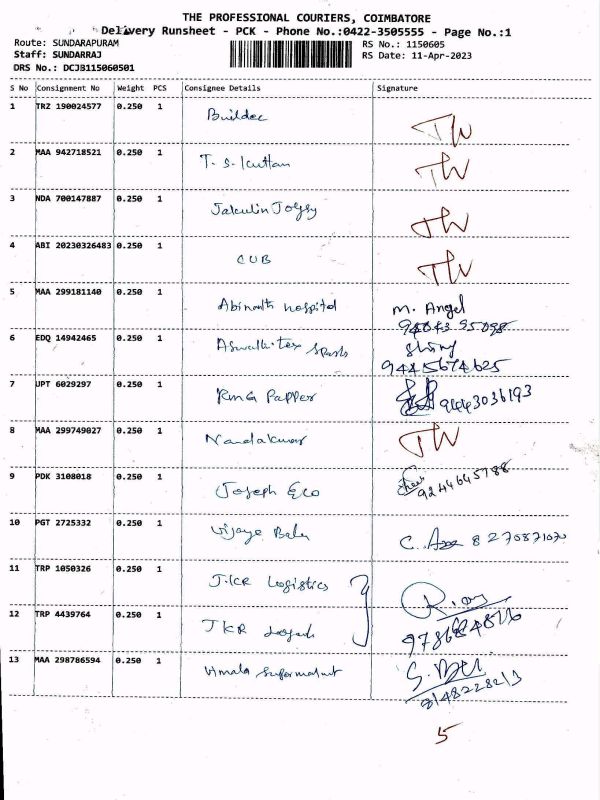 THE PROFESSIONAL COURIERS, COIMBATORE
Delivery Runsheet - PCK - Phone No.:0422-3505555 - Page No.:1
Route: SUNDARAPURAM RS No.: 1150605
Staff: SUNDARRAJ RS Date: 11-Apr-2023
DRS No.: DCJB115060501
S No Consignment No Weight PCS Consignee Details Signature
1 TRZ 190024577 0.250 1 Buildec TW
2 MAA 942718521 0.250 1 T. S. Kuttan TW
3 NDA 700147887 0.250 1 TW
4 ABI 20230326483 0.250 1 CUB TW
5 MAA 299181140 0.250 1 Abinath hospital M. Angel
94043 95098
6 EDQ 14942465 0.250 1
9445674625
7 UPT 6029297 0.250 1 RMG Papper 9443036193
8 MAA 299749027 0.250 1 Nandakumar TW
9 PDK 3108018 0.250 1 Joseph Eco
9244645788
10 PGT 2725332 0.250 1 Vijaya Bala C.
11 TRP 1050326 0.250 1 J.KR Logistics
12 TRP 4439764 0.250 1 JKR
13 MAA 298786594 0.250 1 Vimala Supermarket
5